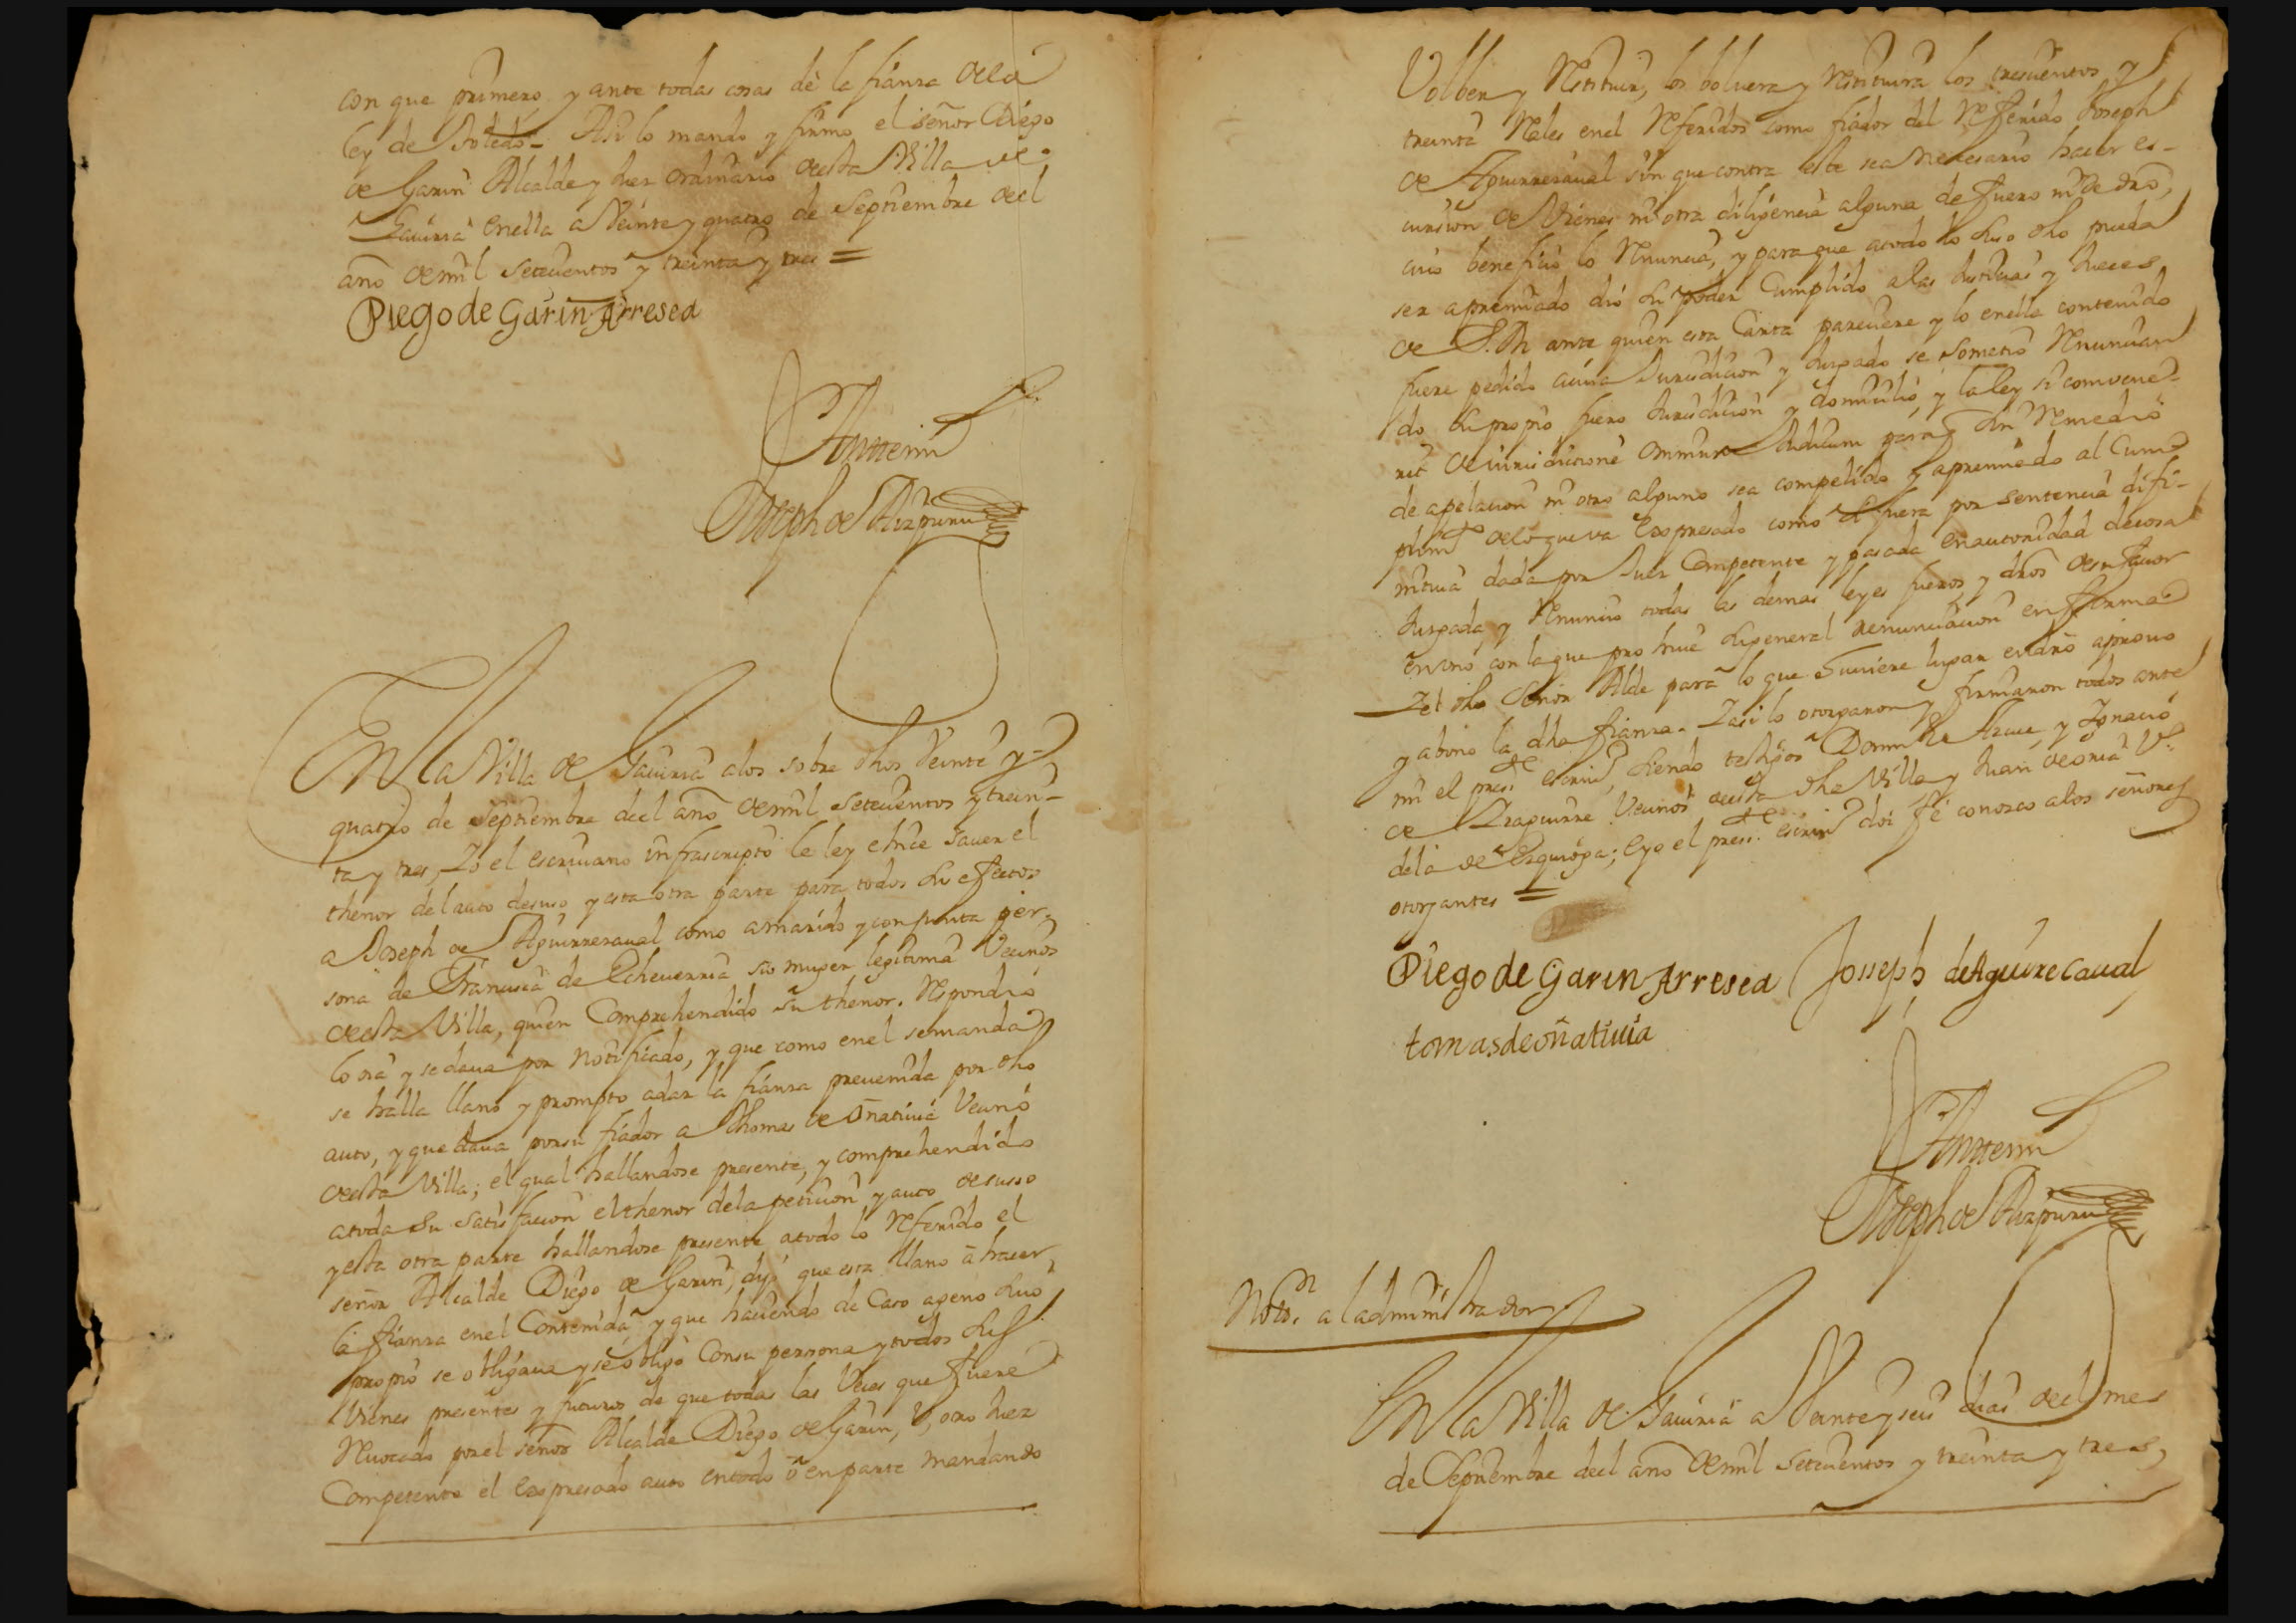 con que primero y ante todas cosas dè la fianza dela
ley de Toledo = Asi lo mando y firmo el señor Diego
de Garin Alcalde y Juez ordinario desta Villa de
Gaviria enella a Veinte y quatro de Septiembre del
año de mil Setecientos y treinta y tres =
Diego de Garin Arresea
Antemi
Joseph de Aizpuru
En la Villa de Gaviria alos sobre dhos Veinte y
quatro de Septiembre del año de mil Setecientos y trein-
ta y tres, Yo el escriuano infrascripto le ley e hice sauer el
thenor del auto desuso y esta otra parte para todos sus efectos
a Joseph de Aguirrezaual como a marido y conjunta per-
sona de Francisca de Echeuerria su muger legitima Vecinos
desta Villa, quien Comprehendido su thenor. Respondio
lo oia y se daua por notificado, y que como enel se manda
se halla llano y prompto a dar la fianza preuenida por dho
auto, y que daua por su fiador a Thomas de oñatiuia Vecino
desta Villa; el qual hallandose presente, y comprehendido
atoda su satisfacion el thenor dela peticion y auto desusso
y esta otra parte hallandose presente atodo lo Referido el
señor Alcalde Diego de Garin, dijo que esta llano à hacer
la fianza enel Contenida, y que haciendo de Caso ageno suio
propio se obligaua y se obligò Con su persona y todos sus
Vienes presentes y futuros de que todas las Veces que fuere
Reuocado por el señor Alcalde Diego de Garin, ù, otro Juez
Competente el Expresado auto entodo ò en parte mandando
Volber y Restituir, los boluera y Restituira los trescientos y
treinta Reales enel Referidos como fiador del Referido Joseph
de Aguirrezaual sin que contra este sea necesario hacer es-
cursion de Vienes ni otra diligencia alguna de fuero ni de dro,
cuio beneficio lo Renuncia, y para que atodo lo suso dho pueda
ser apremiado dio su poder Cumplido alas Justicias y Jueces
de S. M. ante quien esta Carta pareciere y lo enella contenido
fuere pedido a cuia Jurisdicion y Juzgado se sometio Renuncian
do su propio fuero Jurisdicion y domicilio, y la ley si convene-
rit de iurisdicione omnium Judicum para q sin Remedio
de apelacion ni otro alguno sea compelido y apremiado al Cum
plimto delo que va Expresado como si fuera por sentencia difi-
nitiua dada por Juez Competente y pasada en autoridad de cosa
Juzgada y Renuncio todas las demas leyes fueros y dros de su fauor
en vno con la que prohiue la general renunciacion en forma
Y el dho Señor Alde para lo que Tuuiere lugar en dro aprouo
y abono la dha fianza. Y asi lo otorgaron y firmaron todos ante
mi el press.te escriuo, siendo testigos Domingo de Azcue, y Ignacio
de Yraguirre Vecinos desta dha Villa y Juan de oria Vo
dela de Ezquioga; e yo el press.te escriuo doi fè conozco alos señores
otorgantes =
Diego de Garin Arresea Josseph de Aguirrecaual
tomas de oñatiuia
Antemi
Joseph de Aizpuru
Noto.n al administrador
En la Villa de Gaviria a Veinte y seis dias del mes
de Septiembre del año de mil Setecientos y treinta y tres,